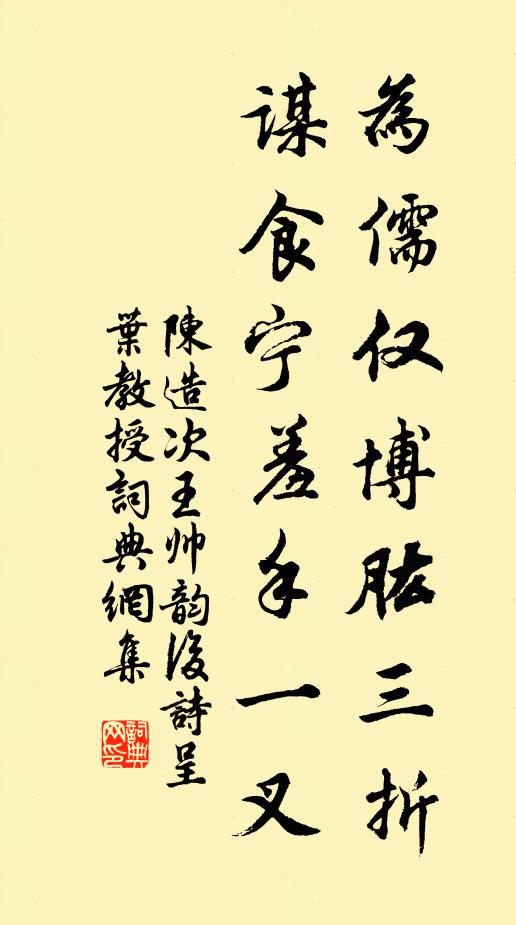 為儒仅博肱三折
謀食宁羞手一叉
陳造次王帅韵後詩呈
葉教授詞典網集
詞典网印